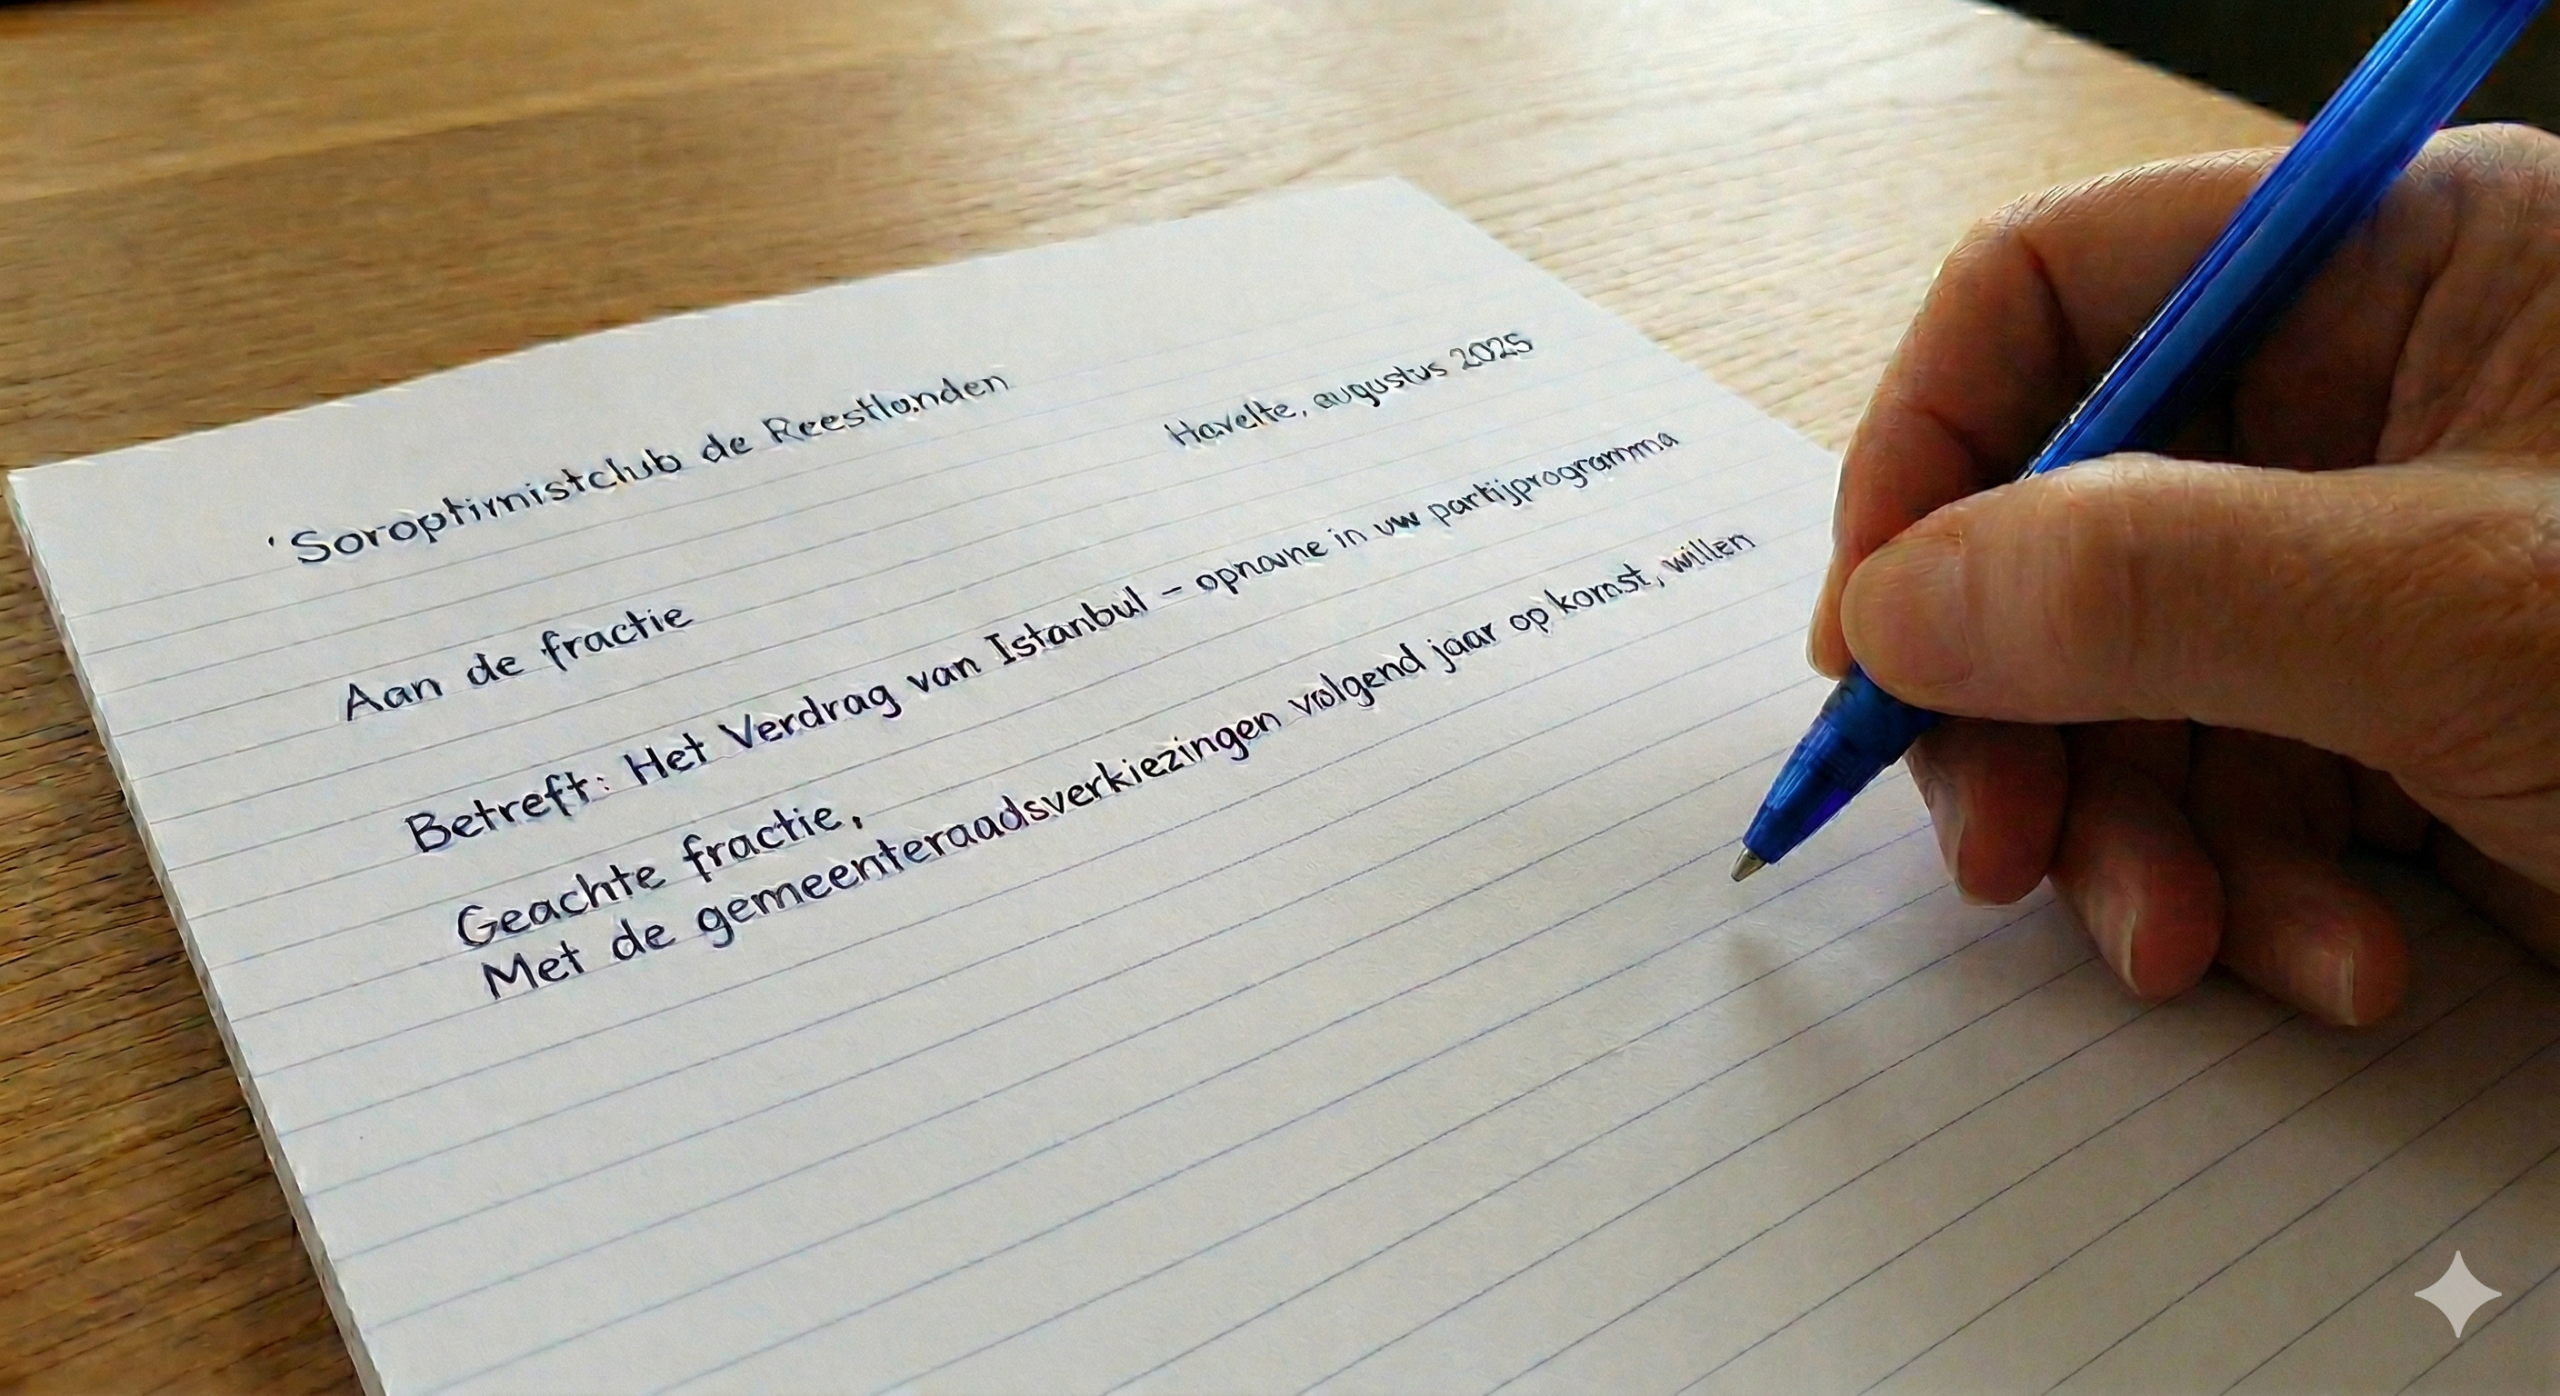 'Soroptimistclub de Reestlanden
Havelte, augustus 2025
Aan de fractie
Betreft: Het Verdrag van Istanbul - opname in uw partijprogramma
Geachte fractie,
Met de gemeenteraadsverkiezingen volgend jaar op komst, willen